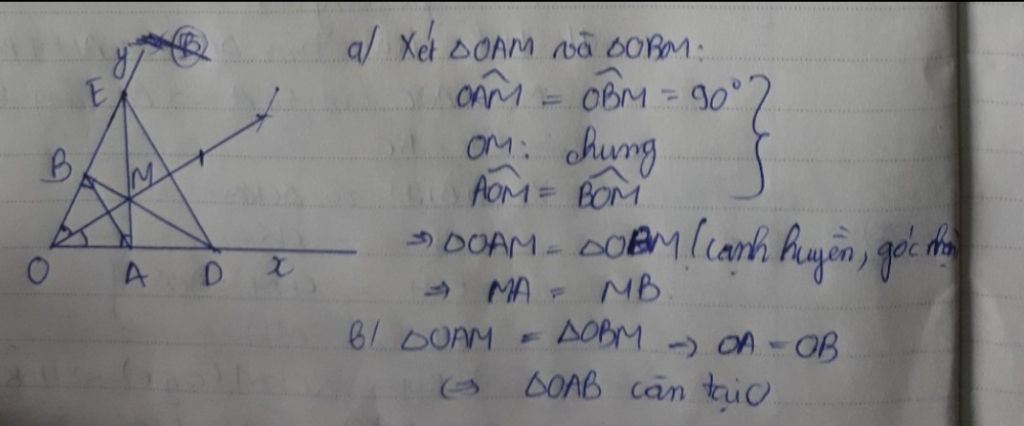 y
E
B
M
O
A
D
x
a/ Xét ΔOAM và ΔOBM:
OÂM = OB̂M = 90°
OM: chung
AÔM = BÔM
⇒ ΔOAM = ΔOBM (cạnh huyền, góc nhọn
⇒ MA = MB.
b/ ΔOAM = ΔOBM → OA = OB
⇔ ΔOAB cân tại O